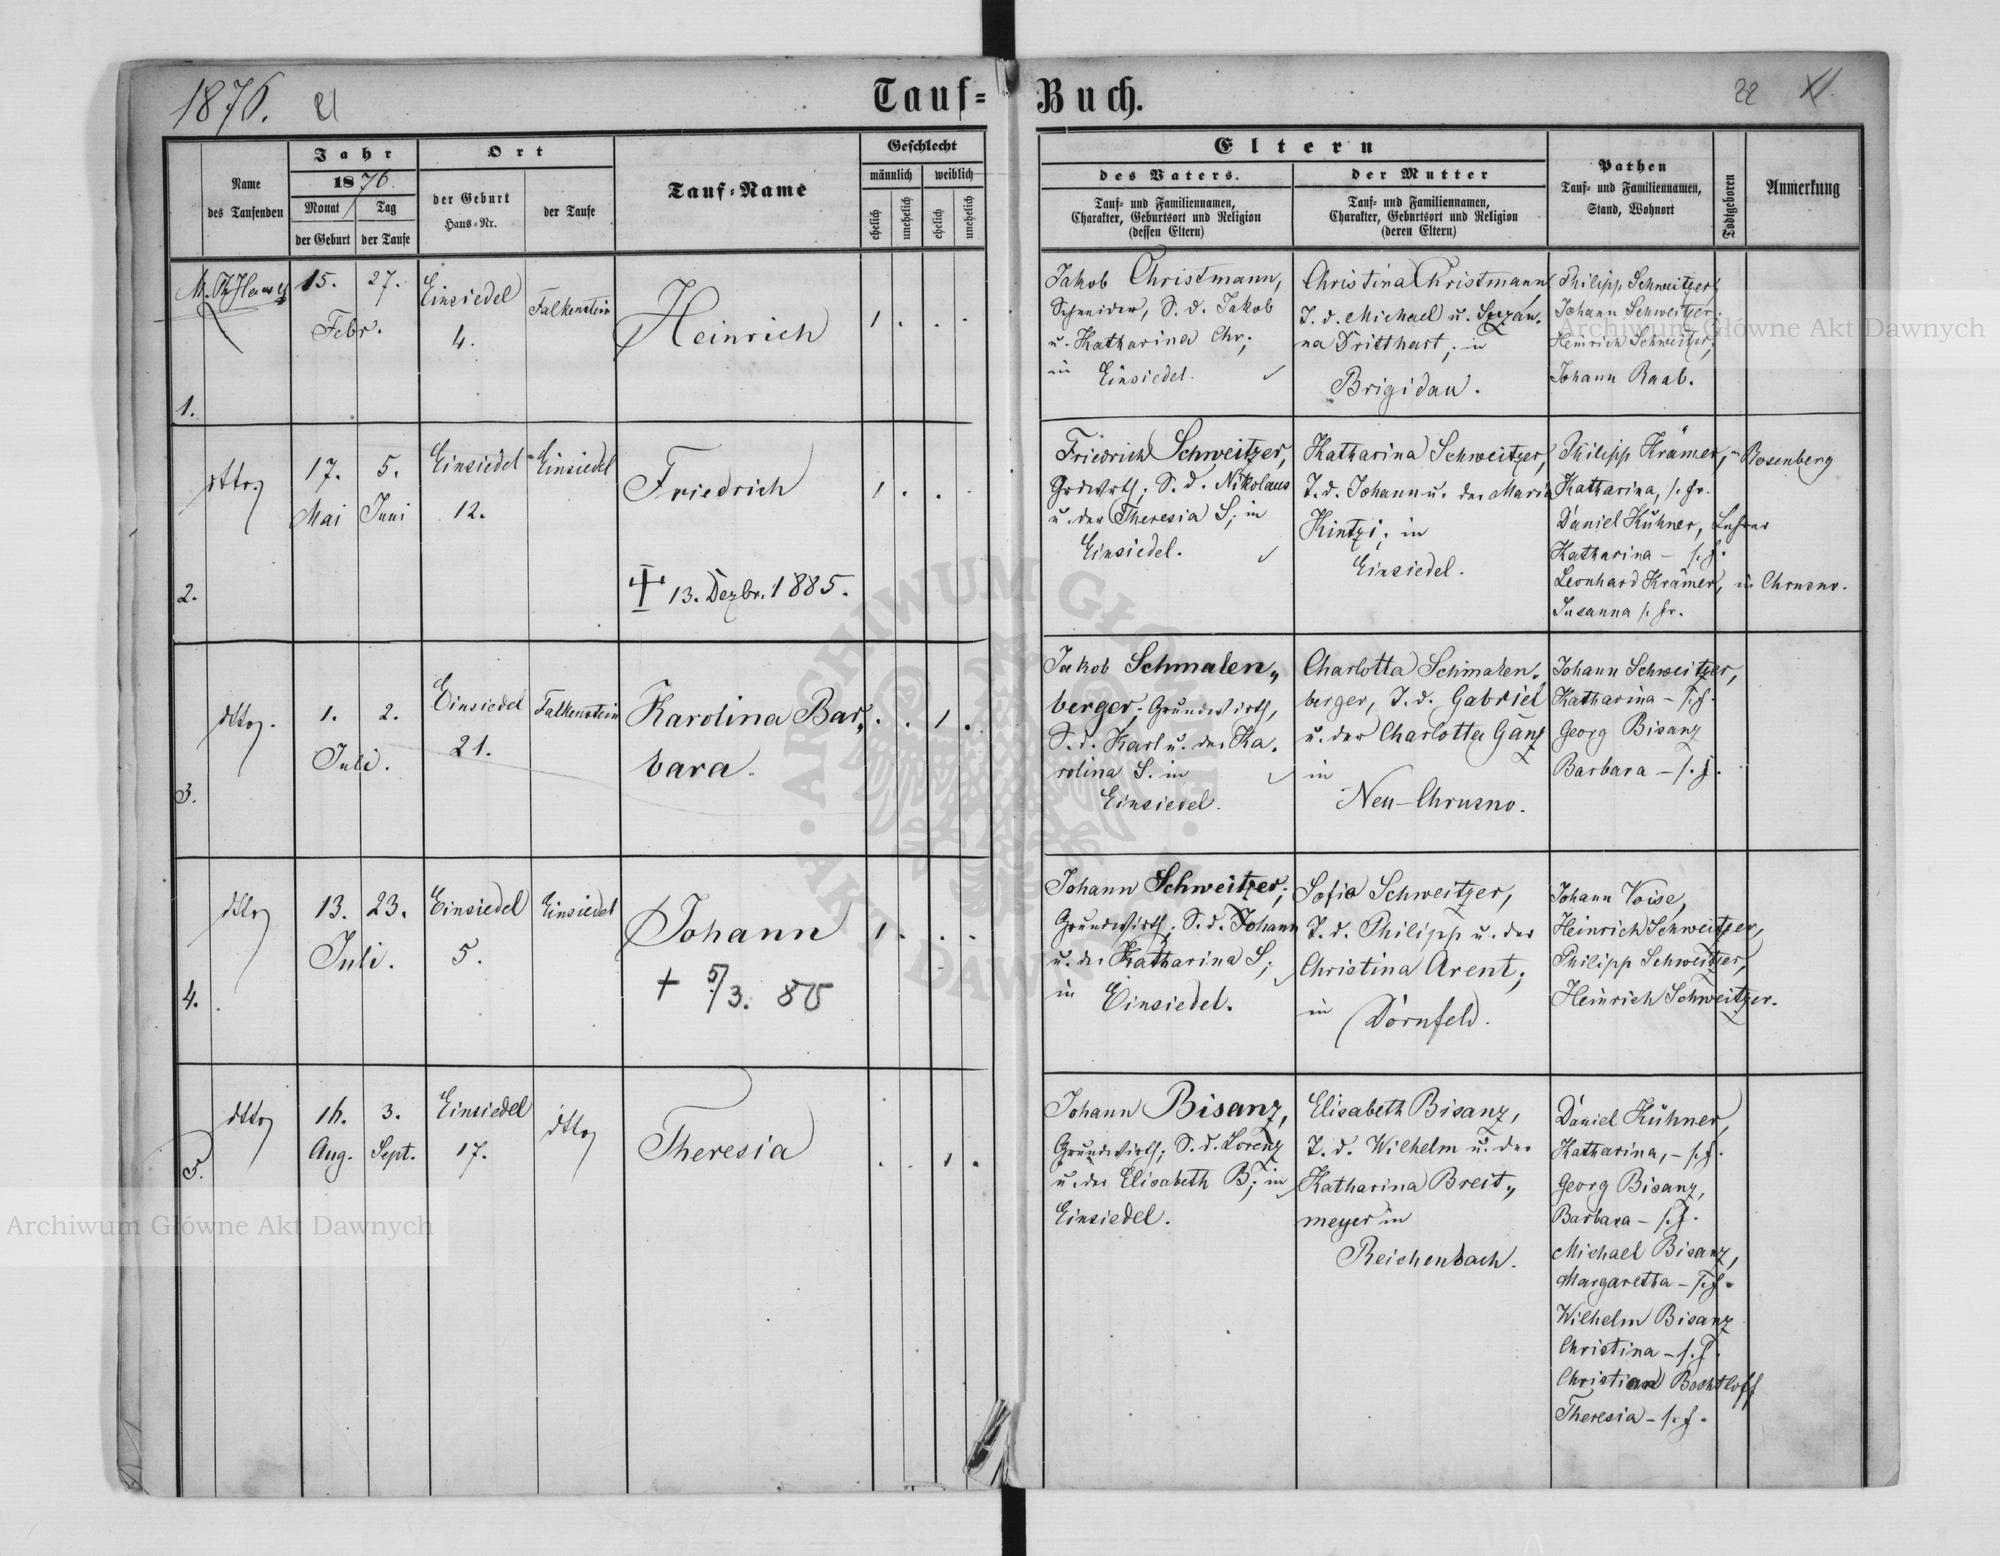 1876. 21
Tauf-Buch.
22 XI.
Name
des Taufenden
Jahr
1876.
Monat
Tag
der Geburt
der Taufe
Ort
der Geburt
Haus-Nr.
der Taufe
Tauf-Name
Geschlecht
männlich
weiblich
ehelich
unehelich
ehelich
unehelich
Eltern
des Vaters.
Tauf- und Familiennamen,
Charakter, Geburtsort und Religion
(dessen Eltern)
der Mutter
Tauf- und Familiennamen,
Charakter, Geburtsort und Religion
(deren Eltern)
Pathen
Tauf- und Familiennamen,
Stand, Wohnort
Todtgeboren
Anmerkung
1.
15.
27.
Febr.
Einsiedel
4.
Falkenstein
Heinrich
1 . . .
Jakob Christmann,
Schneider, S. d. Jakob
u. Katharina Chr;
in Einsiedel.
Christina Christmann
T. d. Michael u. Suzan-
na Dritthart; in
Brigidau.
Philipp Schweitzer,
Johann Schweitzer,
Heinrich Schweitzer,
Johann Raab.
2.
dtto
17.
5.
Mai
Juni
Einsiedel
12.
Einsiedel
Friedrich
† 13. Dezbr. 1885.
1 . .
Friedrich Schweitzer,
Grdwrth; S. d. Nikolaus
u. der Theresia S; in
Einsiedel.
Katharina Schweitzer,
T. d. Johann u. der Maria
Kintzi; in
Einsiedel.
Philipp Krämer, in Rosenberg
Katharina, s. fr.
Daniel Kühner, Lehrer
Katharina – s. f.
Leonhard Krämer, in Chrusno.
Susanna s. fr.
3.
dtto.
1.
2.
Juli.
Einsiedel
21.
Falkenstein
Karolina Bar„
bara.
. . 1 .
Jakob Schmalen„
berger, Grundwirth,
S. d. Karl u. der Ka-
rolina S. in
Einsiedel.
Charlotta Schmalen-
berger, T. d. Gabriel
u. der Charlotta Ganz
in
Neu-Chrusno.
Johann Schweitzer,
Katharina – s. f.
Georg Bisanz
Barbara – s. f.
4.
dtto
13.
23.
Juli.
Einsiedel
5.
Einsiedel
Johann
+ 5/3. 80
1 . . .
Johann Schweitzer;
Grundwirth; S. d. Johann
u. der Katharina S;
in Einsiedel.
Sofia Schweitzer,
T. d. Philipp u. der
Christina Arent;
in Dornfeld.
Johann Voise,
Heinrich Schweitzer,
Philipp Schweitzer,
Heinrich Schweitzer.
5.
dtto
16.
3.
Aug.
Sept.
Einsiedel
17.
dtto
Theresia
. . 1 .
Johann Bisanz,
Grundwirth; S. d. Lorenz
u. der Elisabeth B; in
Einsiedel.
Elisabeth Bisanz,
T. d. Wilhelm u. der
Katharina Breit„
meyer in
Reichenbach.
Daniel Kühner,
Katharina, – s. f.
Georg Bisanz,
Barbara – s. f.
Michael Bisanz,
Margaretha – s. f.
Wilhelm Bisanz
Christina – s. f.
Christian Bechtloff
Theresia – s. f.
Archiwum Główne Akt Dawnych
Archiwum Główne Akt Dawnych
ARCHIWUM GŁÓWNE AKT DAWNYCH